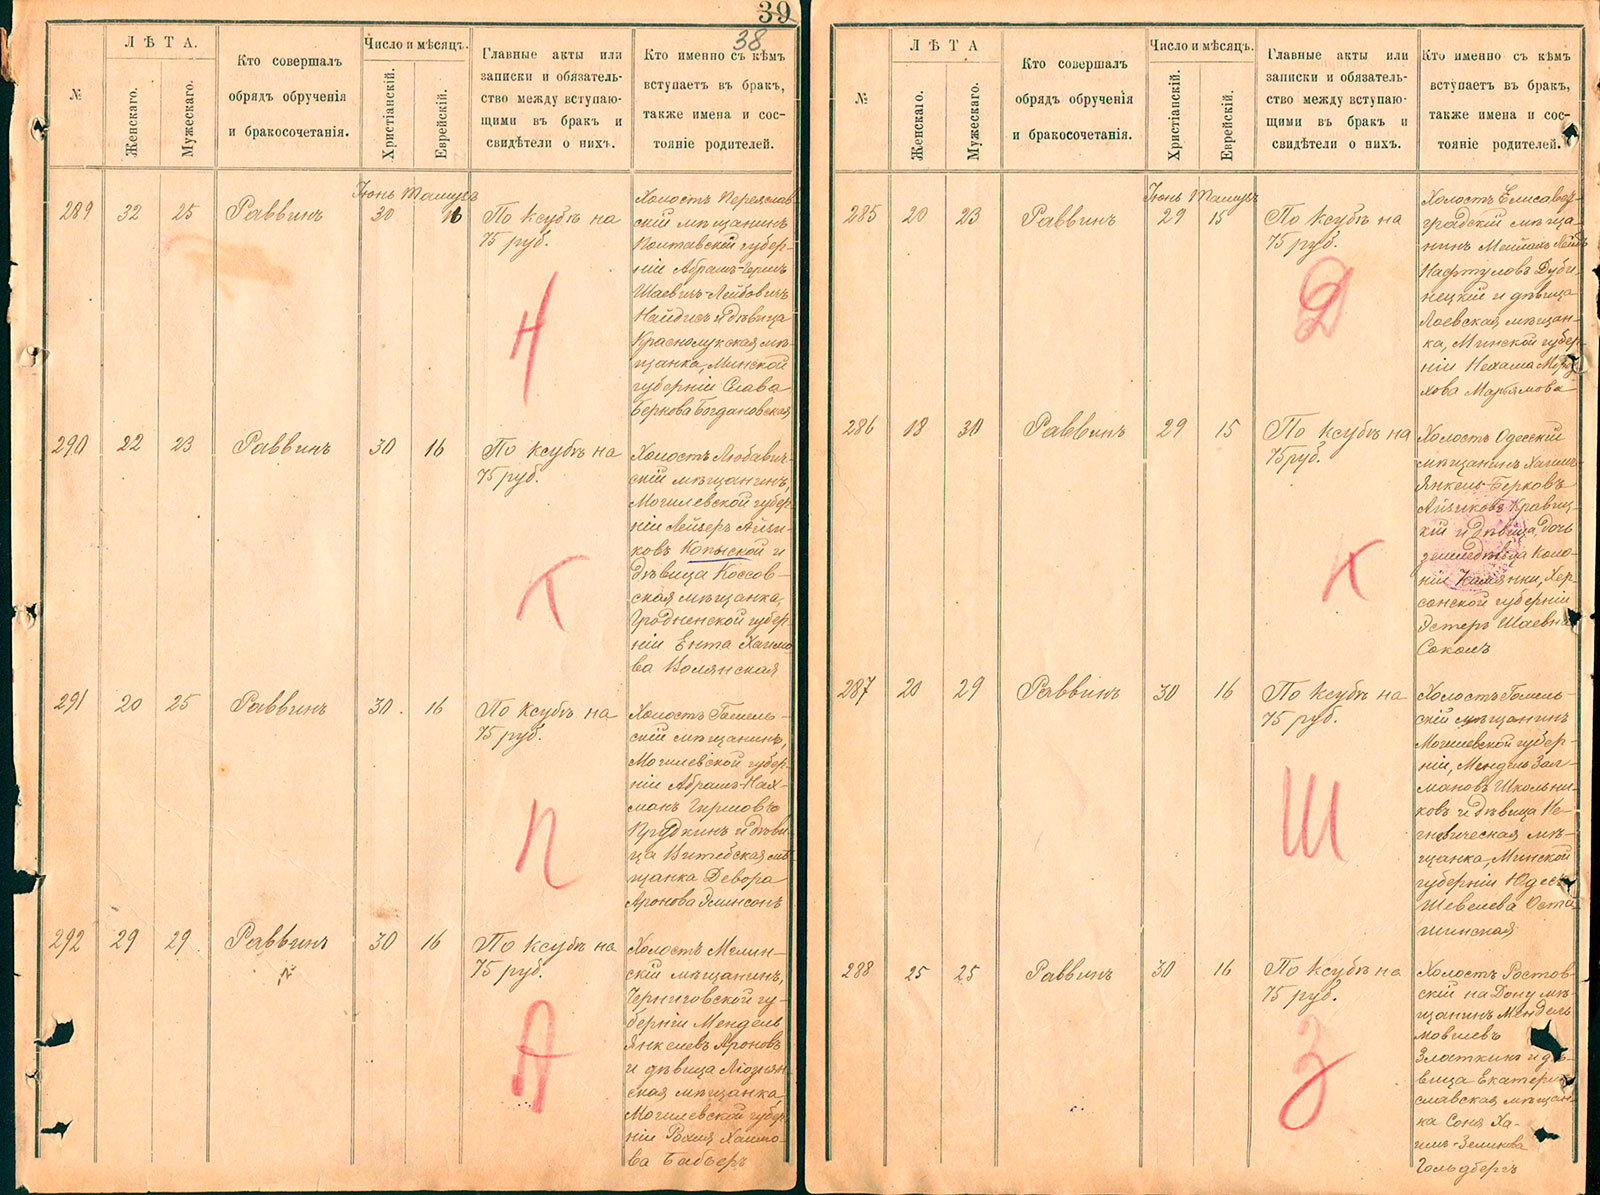 39
38
№
ЛѢТА.
Женскаго.
Мужескаго.
Кто совершалъ
обрядъ обрученія
и бракосочетанія.
Число и мѣсяцъ.
Христіанскій.
Еврейскій.
Главные акты или
записки и обязатель-
ство между вступаю-
щими въ бракъ и
свидѣтели о нихъ.
Кто именно съ кѣмъ
вступаетъ въ бракъ,
также имена и сос-
тояніе родителей.
Іюнь Тамузъ
289 32 25 Раввинъ 30 16
По ксубѣ на
75 руб.
Н
Холостъ Переяслав
скій мѣщанинъ
Полтавской губер-
ніи Абрамъ-Гершъ
Шаевичъ-Лейбовичъ
Найдисъ и дѣвица
Краснолукская мѣ-
щанка, Минской
губерніи Слава
Беркова Богдановская
290 22 23 Раввинъ 30 16
По ксубѣ на
75 руб.
К
Холостъ Любавич-
скій мѣщанинъ,
Могилевской губер
ніи Лейзеръ Айзи-
ковъ Копыской и
дѣвица Коссов-
ская мѣщанка,
Гродненской губер
ніи Ента Хаимо
ва Волянская
291 20 25 Раввинъ 30 16
По ксубѣ на
75 руб.
П
Холостъ Гомель-
скій мѣщанинъ,
Могилевской губер-
ніи Абрамъ-Нах-
манъ Гиршовъ
Прудкинъ и дѣви-
ца Витебская мѣ
щанка Девора
Аронова Эминсонъ
292 29 29 Раввинъ 30 16
По ксубѣ на
75 руб.
А
Холостъ Мглин-
скій мѣщанинъ,
Черниговской гу-
берніи Мендель
Янкелевъ Ароновъ
и дѣвица Ліозня
ская мѣщанка
Могилевской губер
ніи Рохля Хаимо-
ва Бабьеръ
№
ЛѢТА
Женскаго.
Мужескаго.
Кто совершалъ
обрядъ обрученія
и бракосочетанія.
Число и мѣсяцъ.
Христіанскій.
Еврейскій.
Главные акты или
записки и обязатель-
ство между вступаю-
щими въ бракъ и
свидѣтели о нихъ.
Кто именно съ кѣмъ
вступаетъ въ бракъ,
также имена и сос-
тояніе родителей.
Іюнь Тамузъ
285 20 23 Раввинъ 29 15
По ксубѣ на
75 руб.
Д
Холостъ Елисавет
градскій мѣща-
нинъ Лейбъ
Нафтуловъ Дуби-
нецкій и дѣвица
Лоевская мѣщан-
ка, Минской губер
ніи Нехама Морду
хова Марьямова
286 18 30 Раввинъ 29 15
По ксубѣ на
75 руб.
К
Холостъ Одесскій
мѣщанинъ Хаимъ-
Янкель-Берковъ
Айзиковъ Кравиц-
кій и дѣвица, дочь
земледѣльца Коло-
ніи Камянки, Хер-
сонской губерніи
Эстеръ Шаевна
Соколъ
287 20 29 Раввинъ 30 16
По ксубѣ на
75 руб.
Ш
Холостъ Гомель-
скій мѣщанинъ
Могилевской губер-
ніи, Мендель Зал-
мановъ Школьни-
ковъ и дѣвица Не-
гневическая мѣ-
щанка, Минской
губерніи Юдесь
Шевелева Оста-
шинская
288 25 25 Раввинъ 30 16
По ксубѣ на
75 руб.
З
Холостъ Ростов-
скій на Дону мѣ-
щанинъ Мендель
Мовшевъ
Златкинъ и дѣ-
вица Екатерино
славская мѣщан-
ка Соня Ха-
имъ-Зеликова
Гольдбергъ